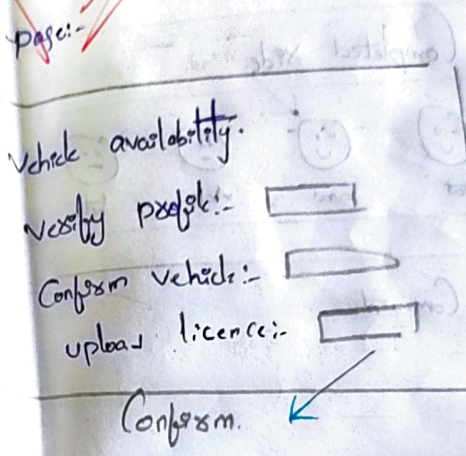 page:-
Vehicle availability.
Verify profile:-
Confirm vehicle:-
upload licence:-
Confirm.